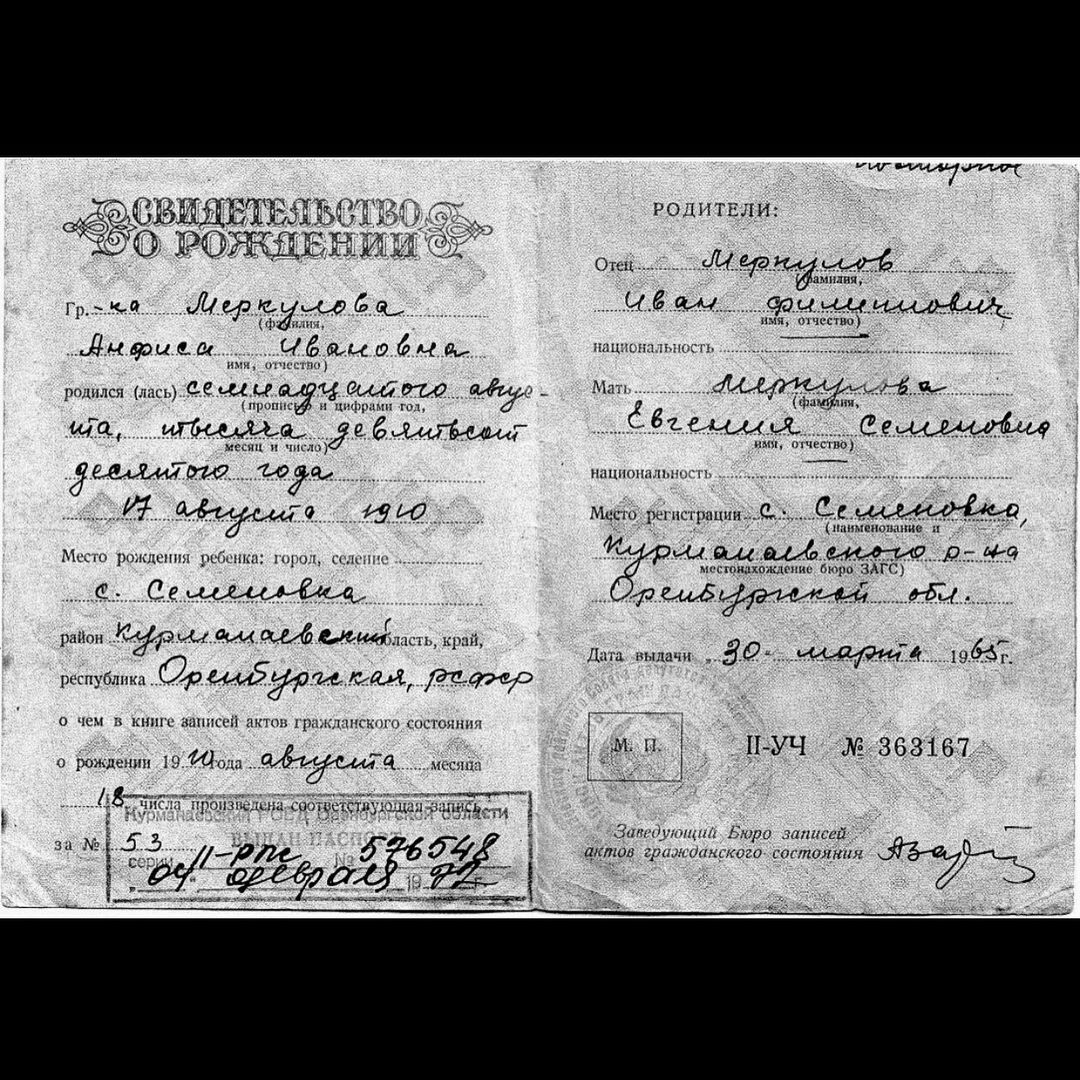 СВИДЕТЕЛЬСТВО
О РОЖДЕНИИ
Гр.-ка Меркулова
(фамилия,
Анфиса Ивановна
имя, отчество)
родился (лась) семнадцатого авгус-
(прописью и цифрами год,
та, тысяча девятьсот
месяц и число)
десятого года
17 августа 1910
Место рождения ребенка: город, селение
с. Семеновка
район Курманаевский область, край,
республика Оренбургская, РСФСР
о чем в книге записей актов гражданского состояния
о рождении 1910 года августа месяца
18 числа произведена соответствующая запись
за № 53
Курманаевский РОВД Оренбургской области
ВЫДАН ПАСПОРТ
серии II-РПС № 576548
"04" февраля 1977 г.
повторное
РОДИТЕЛИ:
Отец Меркулов
(фамилия,
Иван Филиппович
имя, отчество)
национальность —
Мать Меркулова
(фамилия,
Евгения Семеновна
имя, отчество)
национальность —
Место регистрации с. Семеновка,
(наименование и
Курманаевского р-на
местонахождение бюро ЗАГС)
Оренбургской обл.
Дата выдачи „30" марта 1965 г.
М. П.
II-УЧ № 363167
Заведующий Бюро записей
актов гражданского состояния